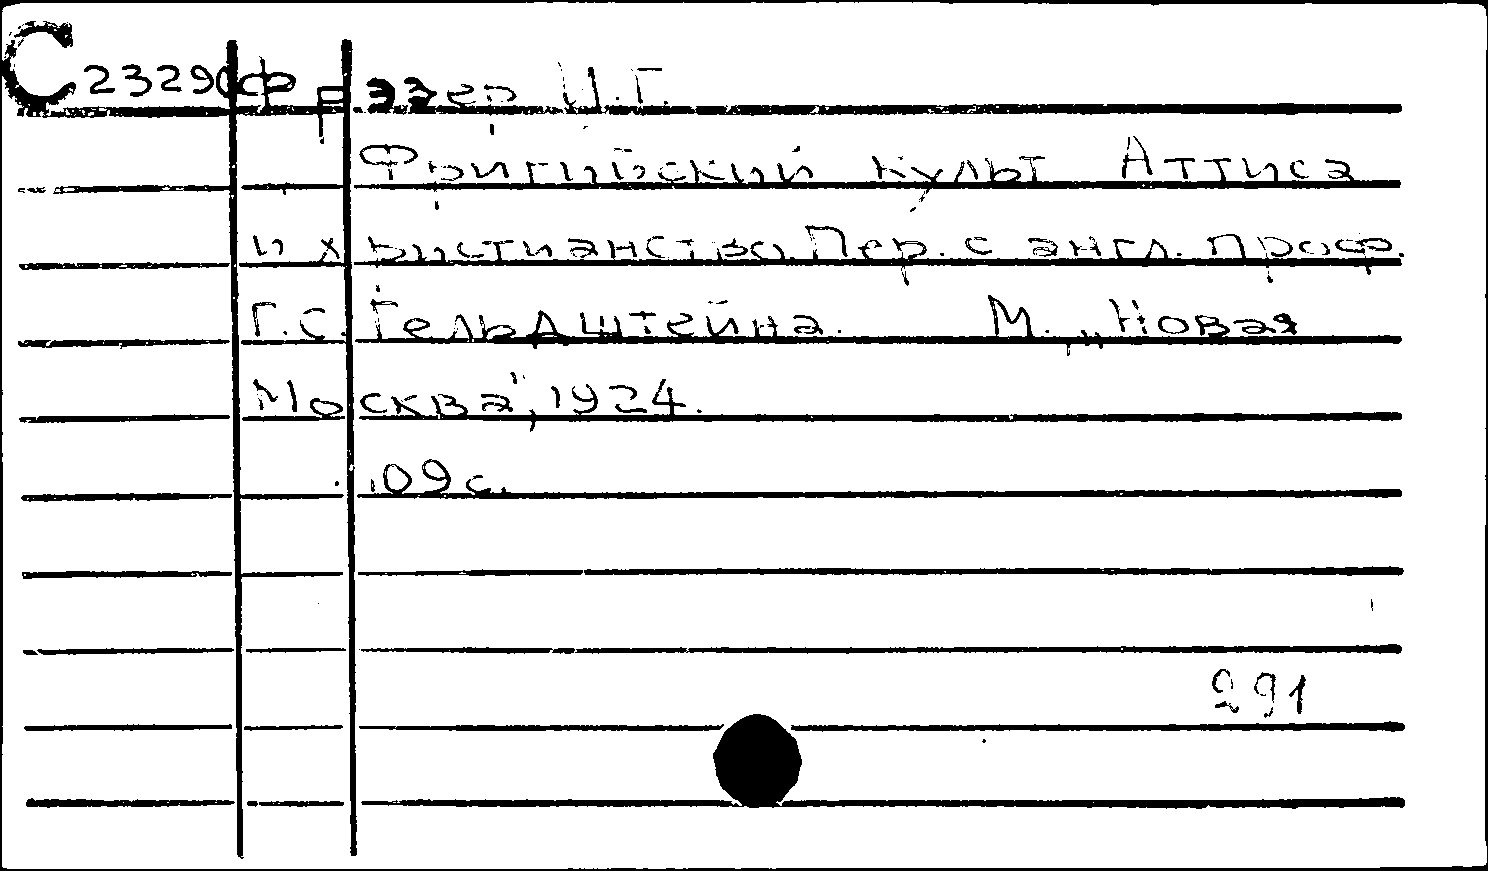 С 23290 Фрэзер И.Г.
Фригийский культ Аттиса
и христианство. Пер. с англ. проф.
Г.С. Гельдштейна. М. „Новая
Москва", 1924.
109 с.
291